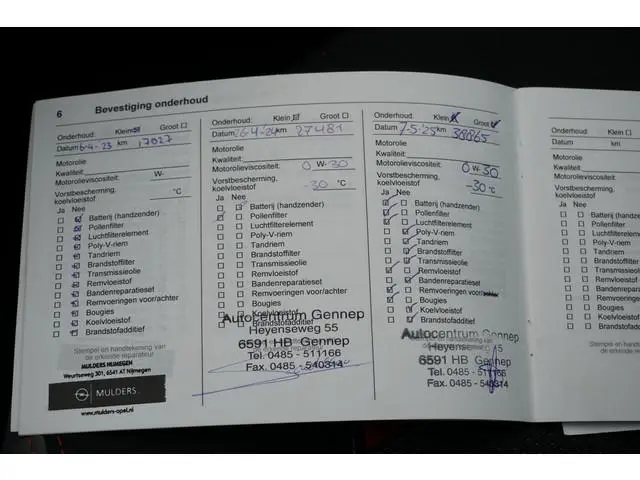 6 Bevestiging onderhoud
Onderhoud: Klein Groot
Datum 6-4-23 km 17027
Motorolie
Kwaliteit: W-
Motorolieviscositeit:
Vorstbescherming, koelvloeistof °C
Ja Nee
Batterij (handzender)
Pollenfilter
Luchtfilterelement
Poly-V-riem
Tandriem
Brandstoffilter
Transmissieolie
Remvloeistof
Bandenreparatieset
Remvoeringen voor/achter
Bougies
Koelvloeistof
Brandstofadditief
Stempel en handtekening van
de erkende reparateur
MULDERS NIJMEGEN
Weurtseweg 301, 6541 AT Nijmegen
MULDERS
www.mulders-opel.nl
Onderhoud: Klein Groot
Datum 26-4-24 km 27481
Motorolie
Kwaliteit:
Motorolieviscositeit: 0 W-30
Vorstbescherming,
koelvloeistof -30 °C
Ja Nee
Batterij (handzender)
Pollenfilter
Luchtfilterelement
Poly-V-riem
Tandriem
Brandstoffilter
Transmissieolie
Remvloeistof
Bandenreparatieset
Remvoeringen voor/achter
Bougies
Koelvloeistof
Brandstofadditief
Autocentrum Gennep
Heyenseweg 55
6591 HB Gennep
Tel. 0485 - 511166
Fax. 0485 - 540314
Onderhoud: Klein Groot
Datum 7-5-25 km 38865
Motorolie
Kwaliteit:
Motorolieviscositeit: 0 W-30
Vorstbescherming,
koelvloeistof -30 °C
Ja Nee
Batterij (handzender)
Pollenfilter
Luchtfilterelement
Poly-V-riem
Tandriem
Brandstoffilter
Transmissieolie
Remvloeistof
Bandenreparatieset
Remvoeringen voor/achter
Bougies
Koelvloeistof
Brandstofadditief
Autocentrum Gennep
6591 HB Gennep
Tel. 0485 - 511166
Fax. 0485 - 540314
Onderhoud: Klein
Datum km
Motorolie
Kwaliteit:
Motorolieviscositeit:
Vorstbescherming,
koelvloeistof
Ja Nee